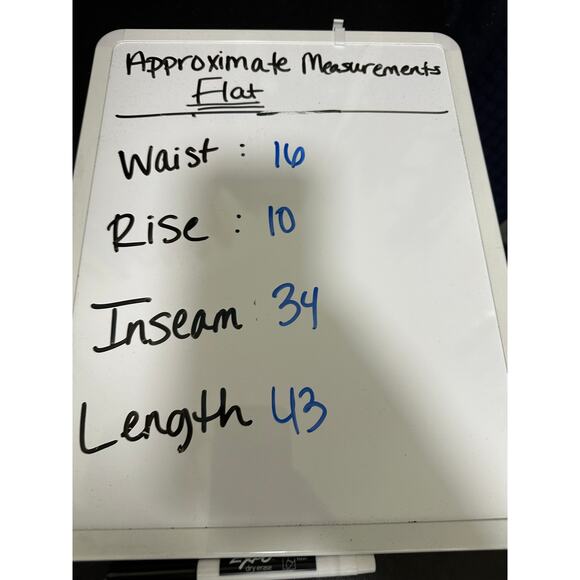 Approximate Measurements
Flat
Waist : 16
Rise : 10
Inseam : 34
Length 43
EXPO
dry erase